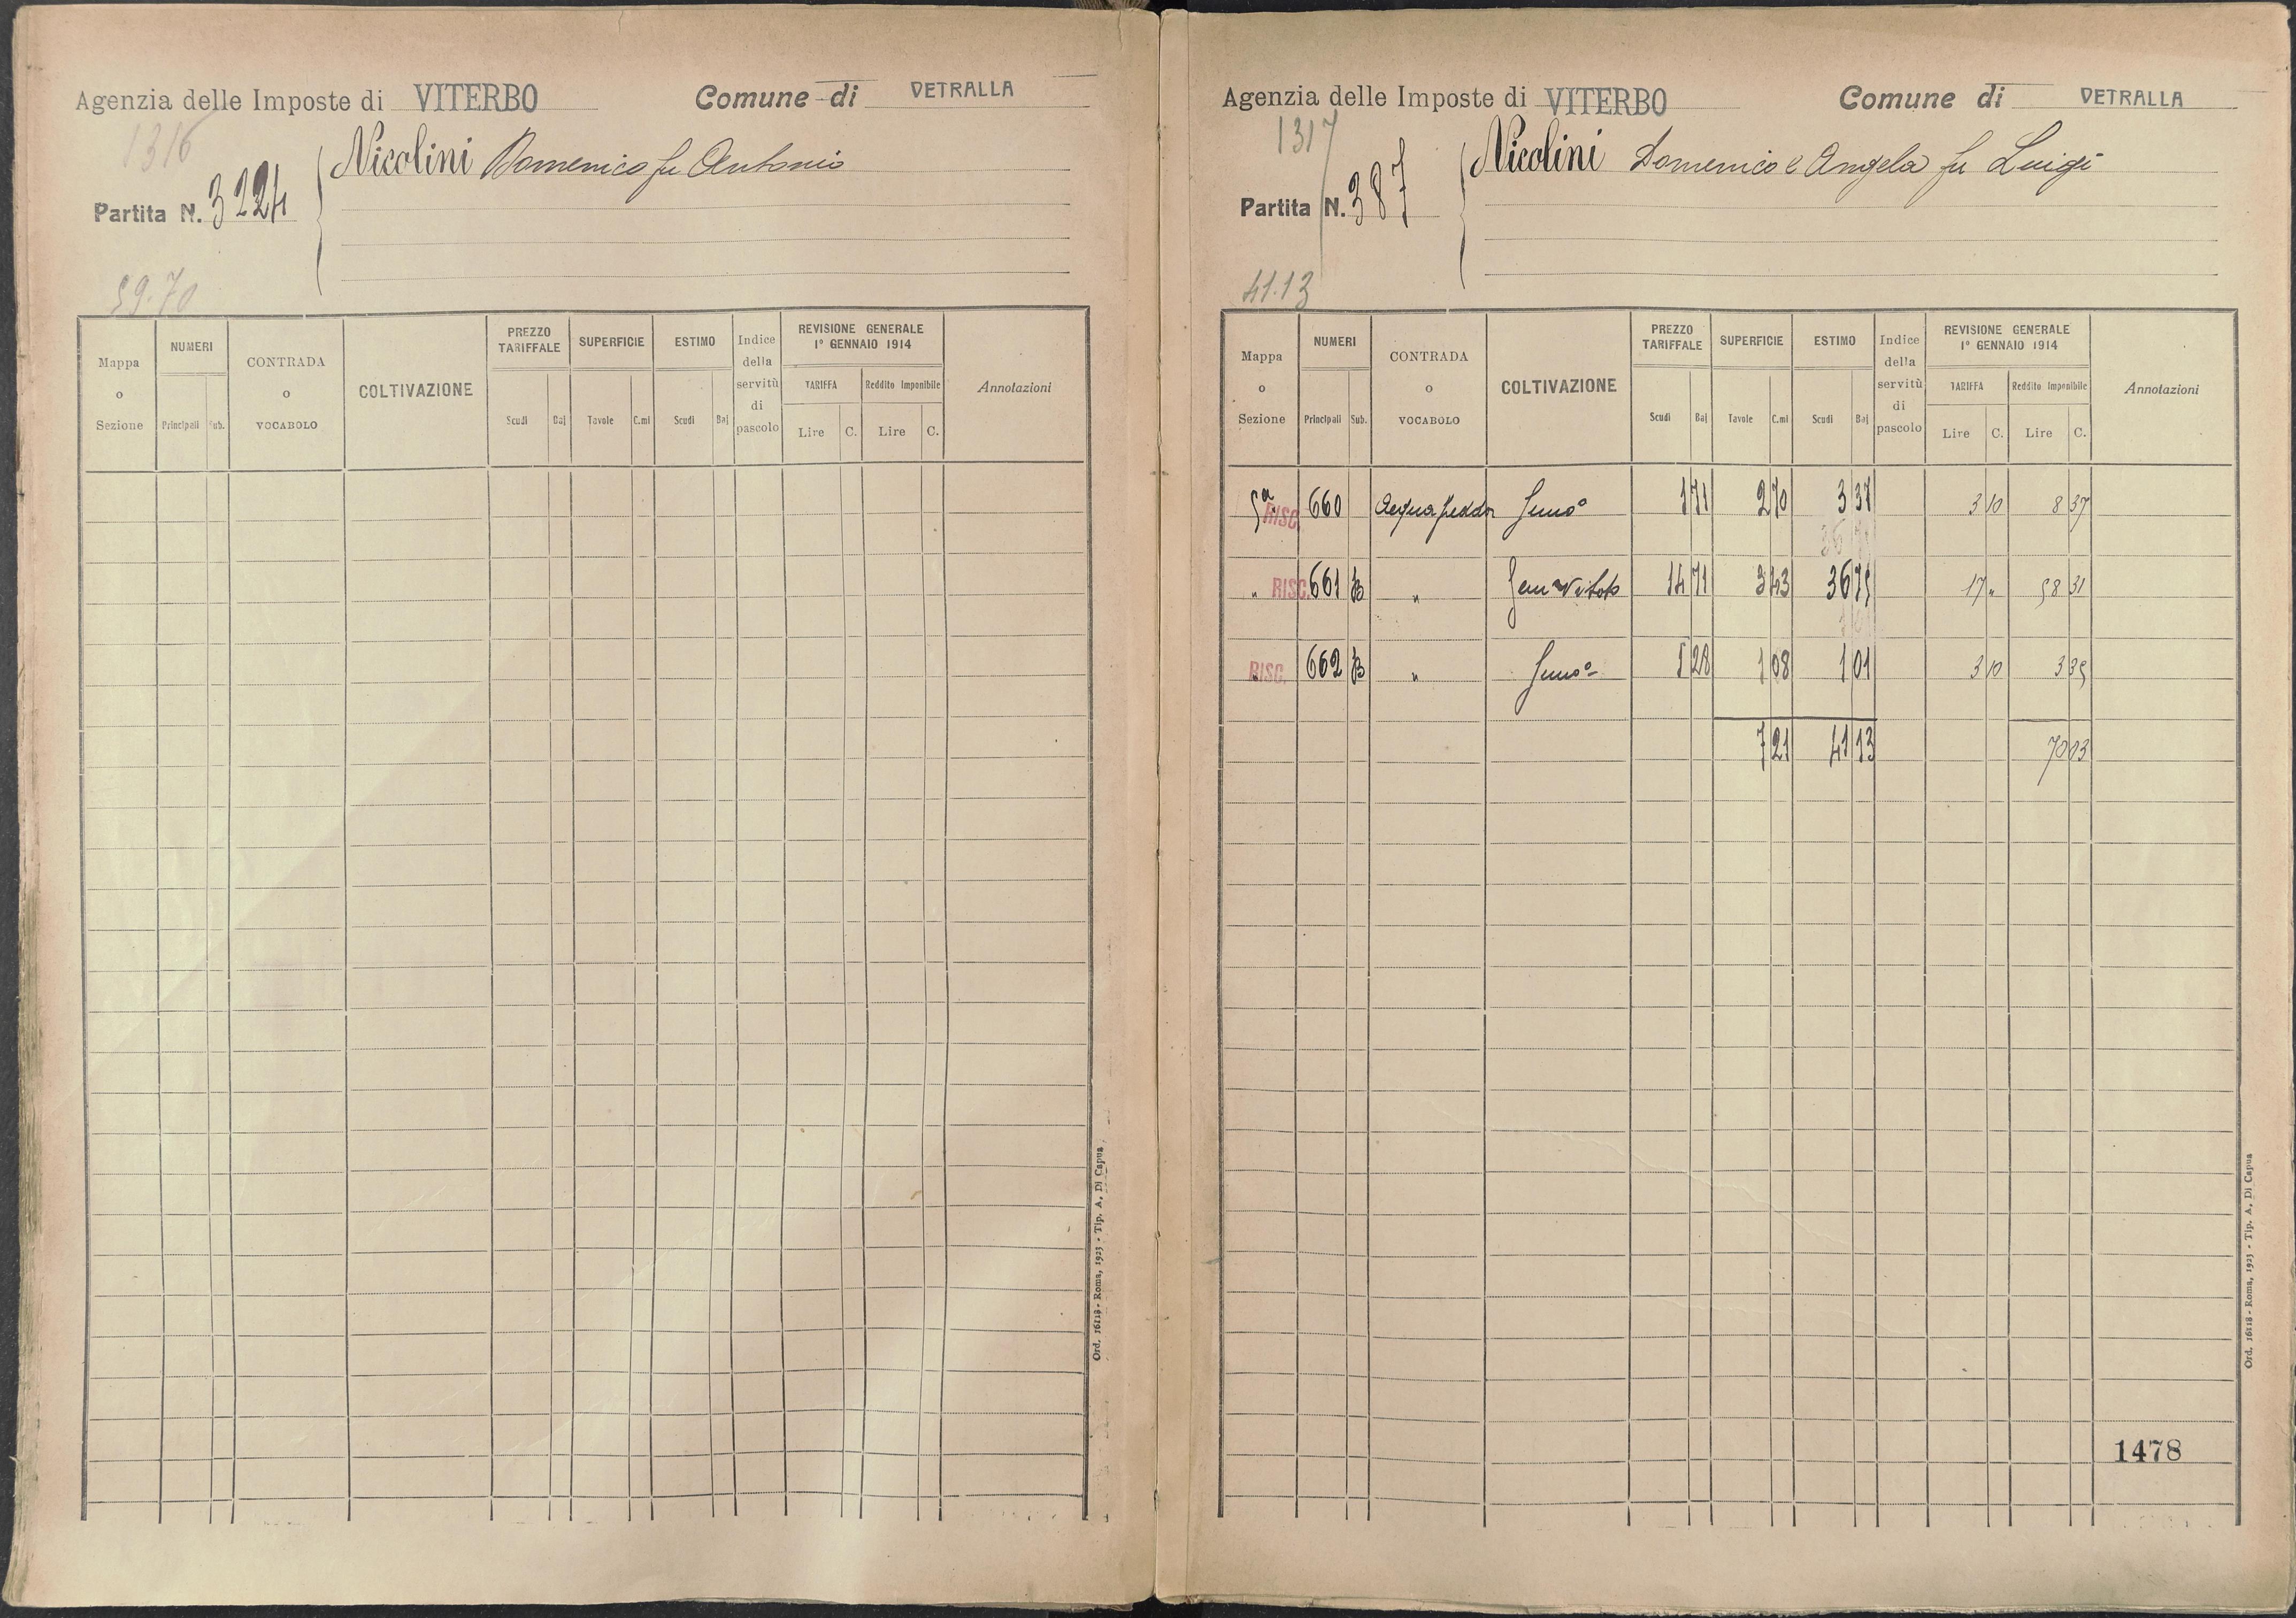 Agenzia delle Imposte di VITERBO Comune di VETRALLA
1316
Nicolini Domenico fu Antonio
Partita N. 3224
59.70
Mappa o Sezione NUMERI Principali Sub. CONTRADA o VOCABOLO COLTIVAZIONE PREZZO TARIFFALE Scudi Baj SUPERFICIE Tavole C.mi ESTIMO Scudi Baj Indice della servitù di pascolo REVISIONE GENERALE 1° GENNAIO 1914 TARIFFA Lire C. Reddito Imponibile Lire C. Annotazioni
Ord. 16118 - Roma, 1923 - Tip. A. Di Capua
Agenzia delle Imposte di VITERBO Comune di VETRALLA
1317
Nicolini Domenico e Angela fu Luigi
Partita N. 387
41.13
Mappa o Sezione NUMERI Principali Sub. CONTRADA o VOCABOLO COLTIVAZIONE PREZZO TARIFFALE Scudi Baj SUPERFICIE Tavole C.mi ESTIMO Scudi Baj Indice della servitù di pascolo REVISIONE GENERALE 1° GENNAIO 1914 TARIFFA Lire C. Reddito Imponibile Lire C. Annotazioni
5a RISC. 660 Acquafredda Semo 1 71 2 70 3 37 3 10 8 37
" RISC. 661 B " Sem Vitato 14 71 3 43 36 75 17 " 58 31
RISC. 662 B " Semo 28 1 08 1 01 3 10 3 35
7 21 41 13 70 03
1478
Ord. 16118 - Roma, 1923 - Tip. A. Di Capua